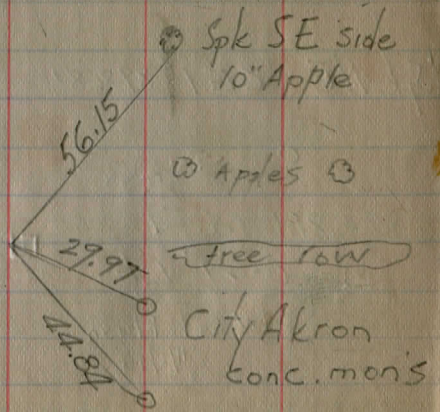 Spk SE side
10" Apple
56.15
Apples
29.97
tree row
City Akron
conc. mon's
44.84